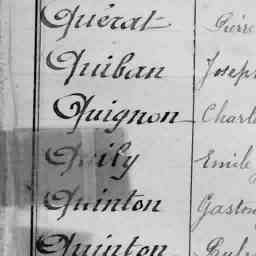 Quérat Pierre
Quiban Josep
Quignon Charl
Quily Emile
Quinton Gaston
Quinton